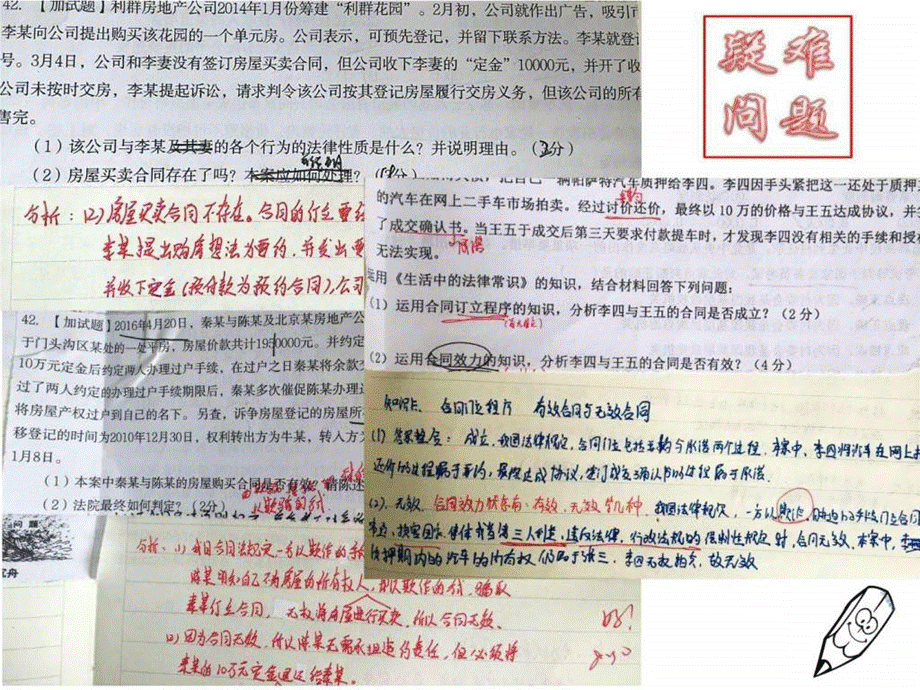 42. 【加试题】利群房地产公司2014年1月份筹建“利群花园”。2月初，公司就作出广告，吸引
李某向公司提出购买该花园的一个单元房。公司表示，可预先登记，并留下联系方法。李某就登
号。3月4日，公司和李妻没有签订房屋买卖合同，但公司收下李妻的“定金”10000元，并开了收
公司未按时交房，李某提起诉讼，请求判令该公司按其登记房屋履行交房义务，但该公司的所有
售完。
（1）该公司与李某及其妻的各个行为的法律性质是什么？并说明理由。（3分）
（2）房屋买卖合同存在了吗？本案应如何处理？
疑难
问题
分析：(2)房屋买卖合同不存在。合同的订立要
李某提出购房想法为要约，并发出要
并收下定金(预付款为预约合同)，公司
辆帕萨特汽车质押给李四。李四因手头紧把这一还处于质押
的汽车在网上二手车市场拍卖。经过讨价还价，最终以10万的价格与王五达成协议，并
了成交确认书。当王五于成交后第三天要求付款提车时，才发现李四没有相关的手续和授
无法实现。
要约
承诺
运用《生活中的法律常识》的知识，结合材料回答下列问题：
（1）运用合同订立程序的知识，分析李四与王五的合同是否成立？（2分）
（2）运用合同效力的知识，分析李四与王五的合同是否有效？（4分）
42. 【加试题】2016年4月20日，秦某与陈某及北京某房地产公
于门头沟区某处的一处平房，房屋价款共计1950000元。并约定
10万元定金后约定两人办理过户手续，在过户之日秦某将余款
过了两人约定的办理过户手续期限后，秦某多次催促陈某办理
将房屋产权过户到自己的名下。另查，诉争房屋登记的房屋所
移登记的时间为2010年12月30日，权利转出方为牛某，转入方为
1月8日。
（1）本案中秦某与陈某的房屋购买合同是否有效？请陈述
（2）法院最终如何判定？（2分）
知识点： 合同订立程序 有效合同与无效合同
(1) 成立，我国法律规定，合同订立包括要约与承诺两个过程，本案中，李四将汽车在网上
还价的过程属于要约，最终达成协议，签订成交确认书的过程属于承诺
(2). 无效，合同效力状态有：有效、无效等几种，我国法律规定，一方以欺诈
第三人利益，违反法律、行政法规的强制性规定时，合同无效，本案中，李
质押期内的汽车的所有权仍属于张三，李四无权拍卖，故无效
分析：(1) 我国合同法规定一方以欺诈的手
陈某明知自己不为房屋的所有权人，却以欺诈的方式，骗取
秦某订立合同，无权将房屋进行买卖，所以合同无效。
(2)因为合同无效，所以陈某无需承担违约责任，但必须将
秦某的10万元定金退还给秦某。